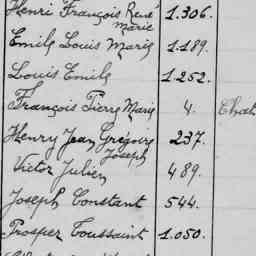 Henri François René 1.306.
Marie
Emile Louis Marie 1.189.
Louis Emile 1.252.
François Pierre Marie 4.
Henry Jean Grégoire 237.
Joseph
Victor Julien 489.
Joseph Constant 544.
Prosper Toussaint 1.050.